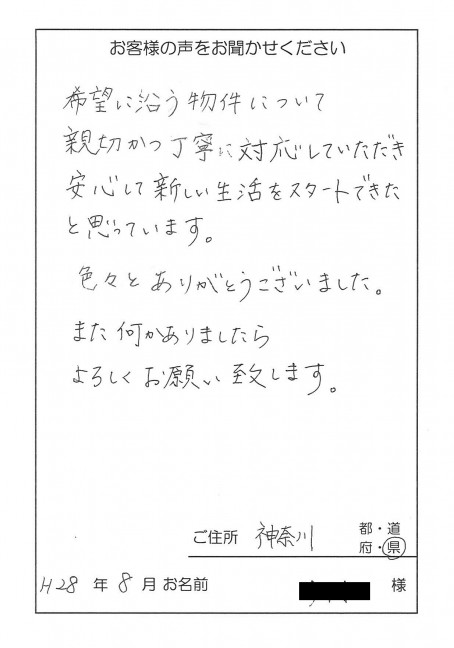 お客様の声をお聞かせください
希望に沿う物件について
親切かつ丁寧に対応していただき
安心して新しい生活をスタートできた
と思っています。
色々とありがとうございました。
また何かありましたら
よろしくお願い致します。
ご住所 神奈川 都・道
府・県
H28 年 8 月 お名前 様